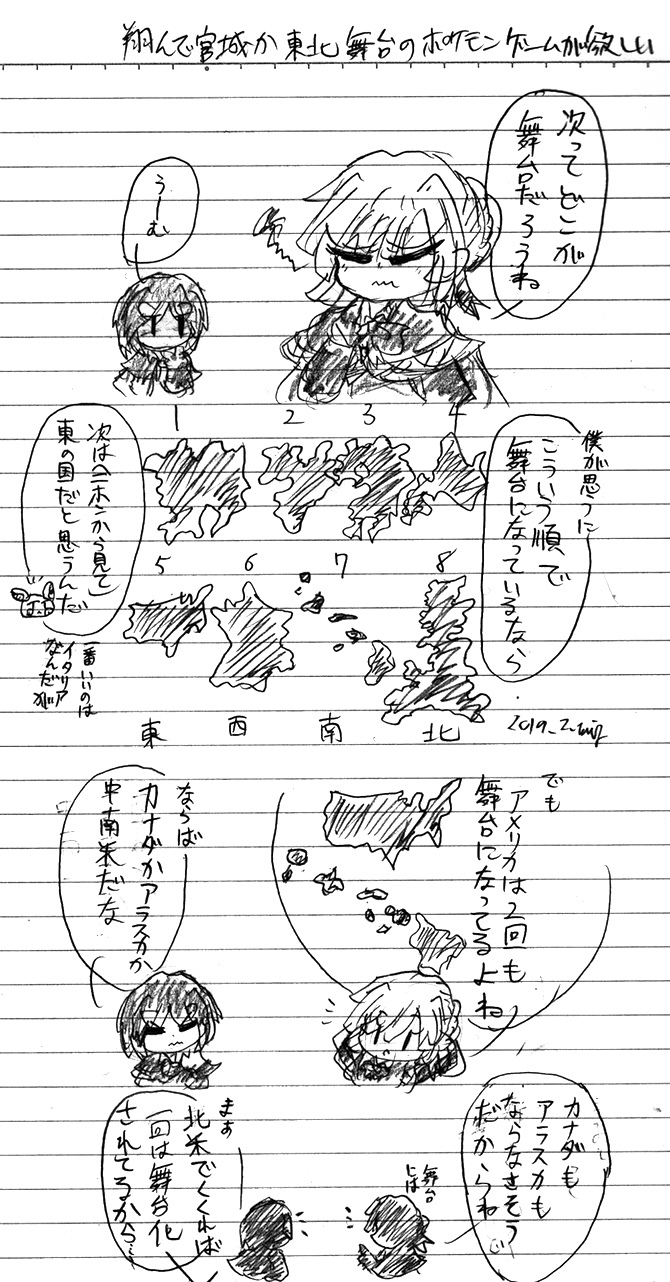 翔んで宮城か東北舞台のポケモンゲームが欲しい
次ってどこが
舞台だろうね
うーむ
1 2 3 4
僕が思うに
こういう順で
舞台になっているなら
5 6 7 8
東 西 南 北
次は「ニホンから見て」
東の国だと思うんだ
一番いいのは
イタリア
なんだが
でも
アメリカは2回も
舞台になってるよね
ならば
カナダかアラスカか
中南米だな
カナダも
アラスカも
ならなさそう
だからね
舞台
には
まぁ
北米でくくれば
一回は舞台化
されてるから…